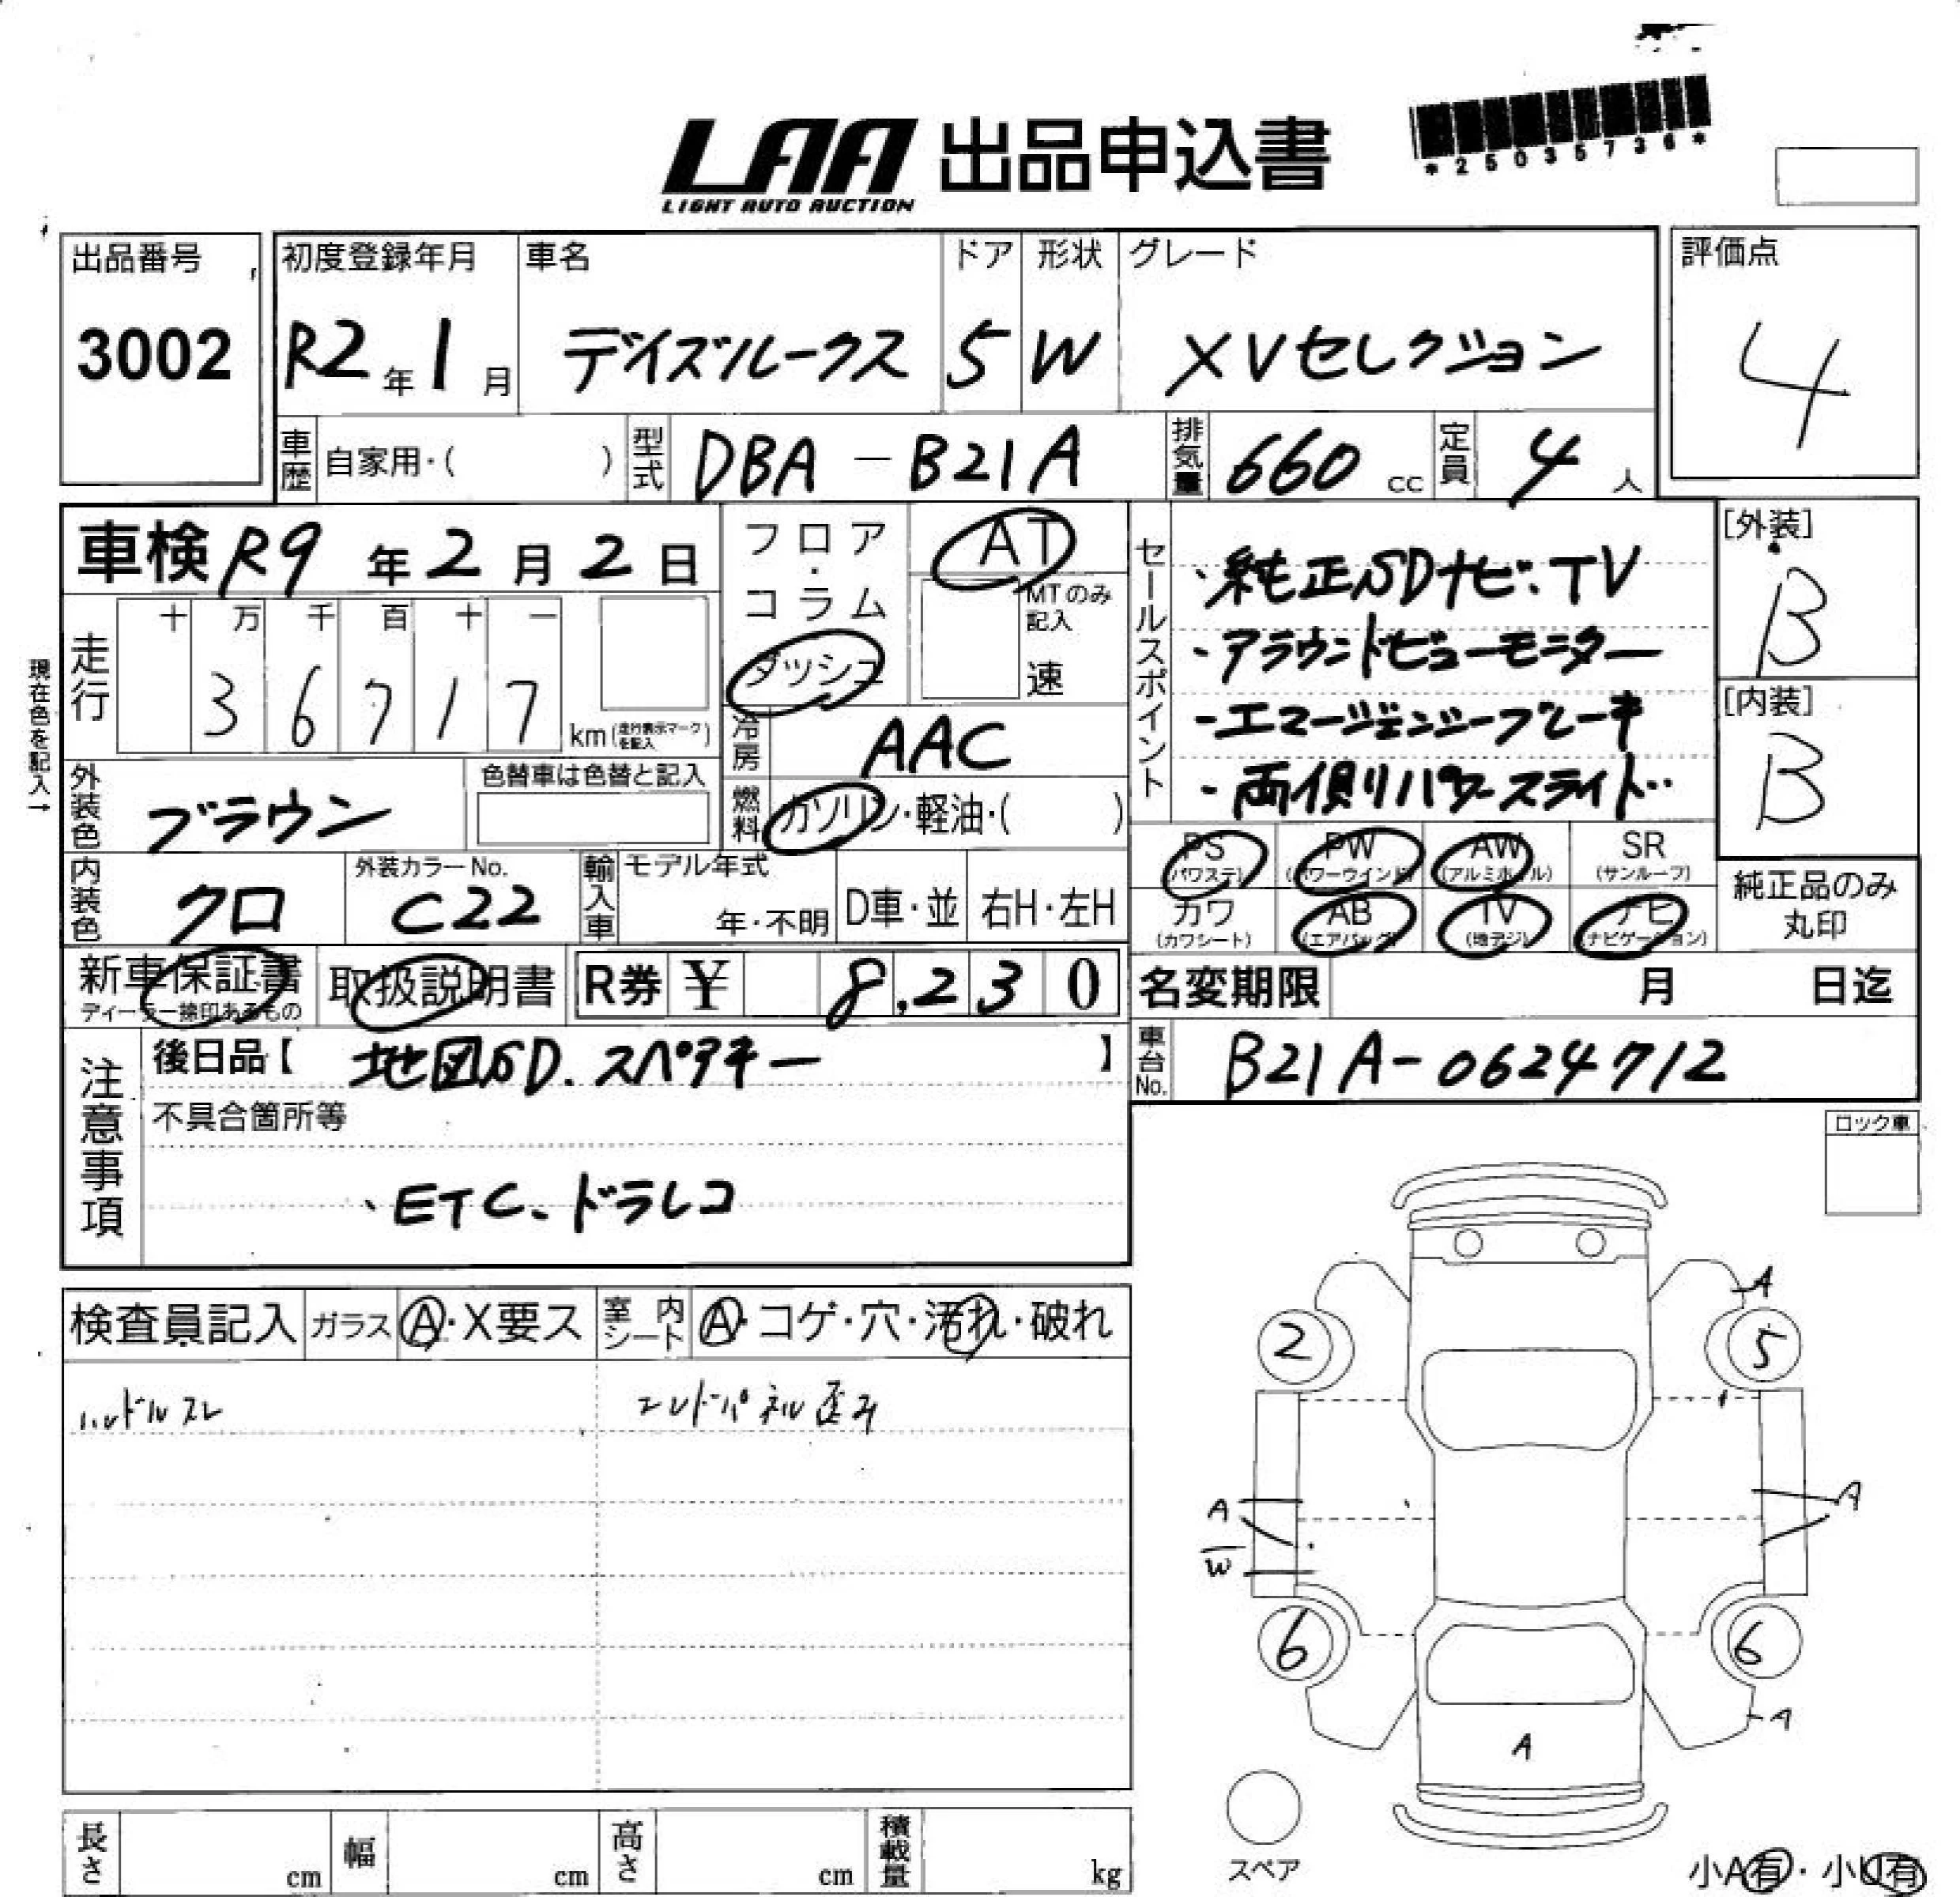 LAA 出品申込書
LIGHT AUTO AUCTION
*25035736*
出品番号 3002
初度登録年月 R2年1月
車名 デイズルークス
ドア 5
形状 W
グレード XVセレクション
評価点 4
車歴 自家用・( )
型式 DBA-B21A
排気量 660 cc
定員 4 人
車検 R9年2月2日
フロア・コラム
ダッシュ
AT
MTのみ記入
速
セールスポイント
・純正SDナビ.TV
・アラウンドビューモニター
・エマージェンシーブレーキ
・両側リパワースライド..
[外装] B
[内装] B
現在色を記入→
走行 十 万 千 百 十 一
3 6 7 1 7
km(走行表示マークを記入)
冷房 AAC
燃料 ガソリン・軽油・( )
外装色 ブラウン
色替車は色替と記入
内装色 クロ
外装カラーNo. C22
輸入車 モデル年式
年・不明 D車・並 右H・左H
PS (パワステ)
PW (パワーウインド)
AW (アルミホイル)
SR (サンルーフ)
カワ (カワシート)
AB (エアバッグ)
TV (地デジ)
ナビ (ナビゲーション)
純正品のみ丸印
新車保証書
ディーラー捺印あるもの
取扱説明書
R券 ¥ 8,230
名変期限 月 日迄
注意事項
後日品【 地図SD.スペアキー 】
車台No. B21A-0624712
不具合箇所等
・ETC.ドラレコ
ロック車
検査員記入 ガラス A・X要ス
室内シート A・コゲ・穴・汚れ・破れ
ハンドルスレ
エンドパネル歪み
A
2 5
A A
W
6 6
A
A
スペア
小A有・小U有
長さ cm
幅 cm
高さ cm
積載量 kg